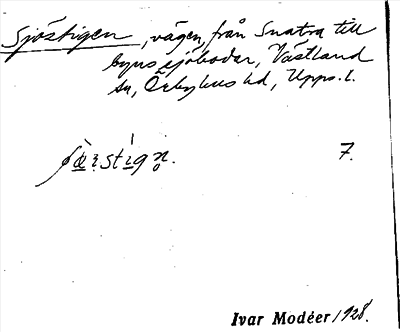 Sjöstigen, vägen, från Snatra till
byns sjöbodar, Västland
sn, Örbyhus hd, Upps. l.
7.
Ivar Modéer 1928.